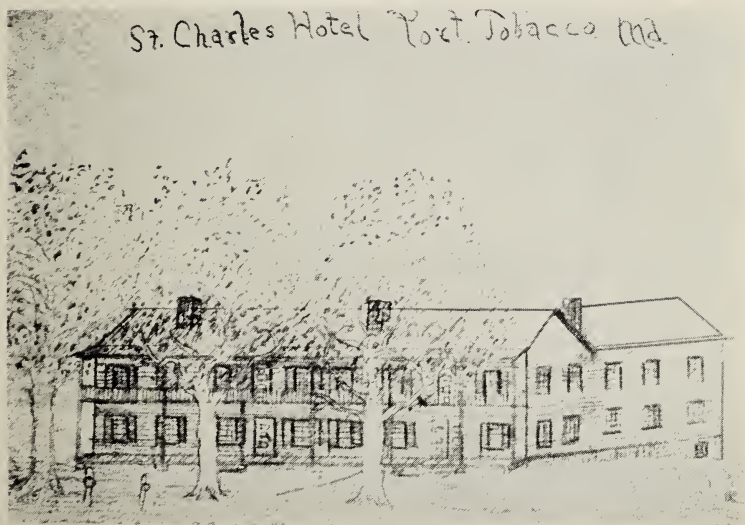 St. Charles Hotel Port Tobacco Md.